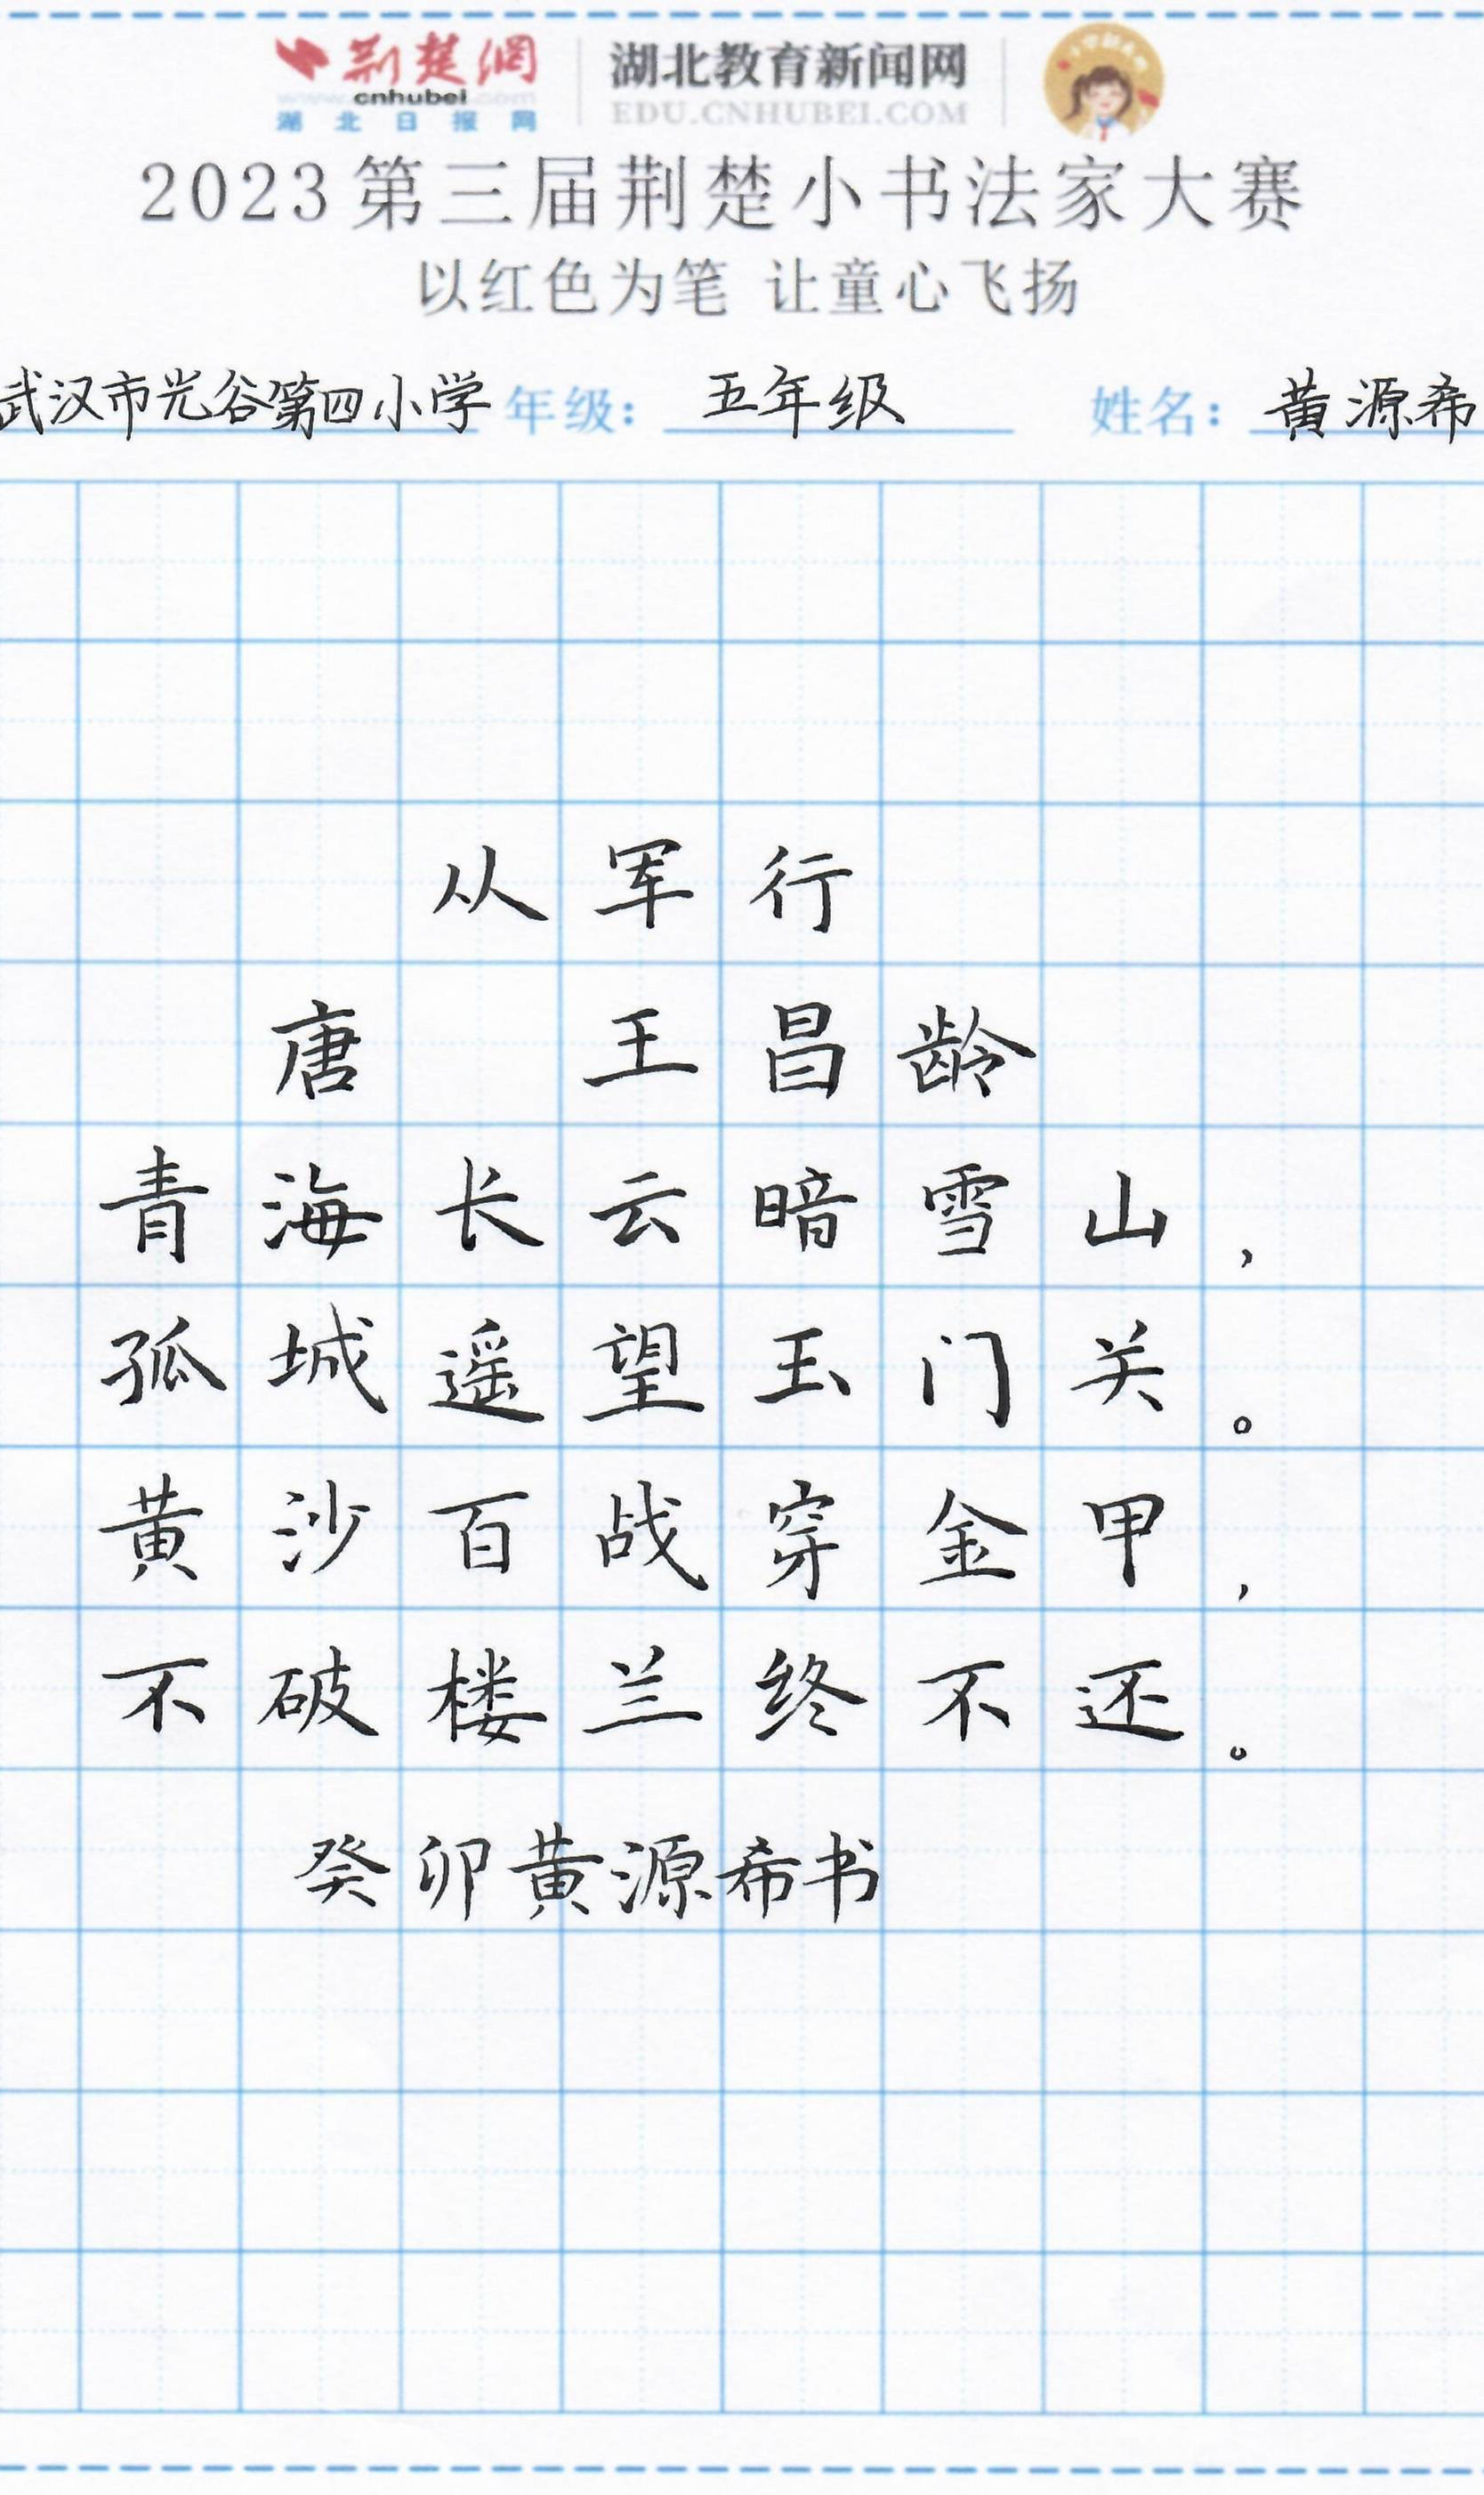 荆楚网 湖北教育新闻网
www.cnhubei.com EDU.CNHUBEI.COM
湖北日报网
2023第三届荆楚小书法家大赛
以红色为笔 让童心飞扬
武汉市光谷第四小学 年级：五年级 姓名：黄源希
从军行
唐 王昌龄
青海长云暗雪山，
孤城遥望玉门关。
黄沙百战穿金甲，
不破楼兰终不还。
癸卯黄源希书